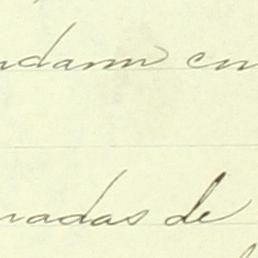 ndann en
nadas de